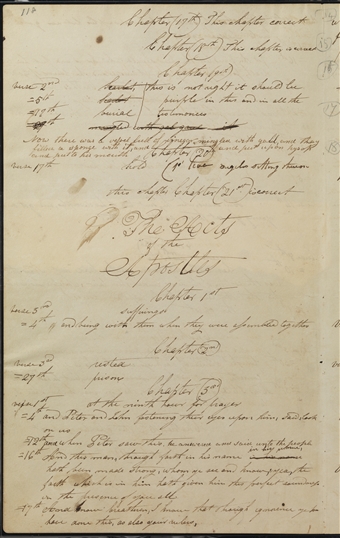 118
Chapter (17th) This chapter correct
Chapter (18th) This chapter is correct
Chapter (19th)
verse 2nd this is not right it should be
= 5th purple in this and in all the
= 40th burial testimonies
Now there was a vessel full of vinegar mingled with gall, and they
filled a sponge with it and put upon hyssop
and put to his mouth Chapter (20th)
verse 17th hold angels sitting thereon
this chapter Chapter (21st) is correct
The Acts
of the
Apostles
Chapter 1st
verse 3d sufferings
= 4th and being with them when they were assembled together
Chapter (2d)
verse 3d rested
= 27th prison
Chapter (3d)
verse 1st at the ninth hour for prayer
= 4th and Peter and John fastening their eyes upon him, said, look
on us
= 12th and when Peter saw this, he answered and said unto the people
= 16th And this man, through faith in his name
hath been made strong, whom ye see and know, yea, the
faith which is in him hath given him this perfect soundness
in the presence of you all
= 17th And now brethren, I know that through ignorance ye
have done this, as also your rulers.